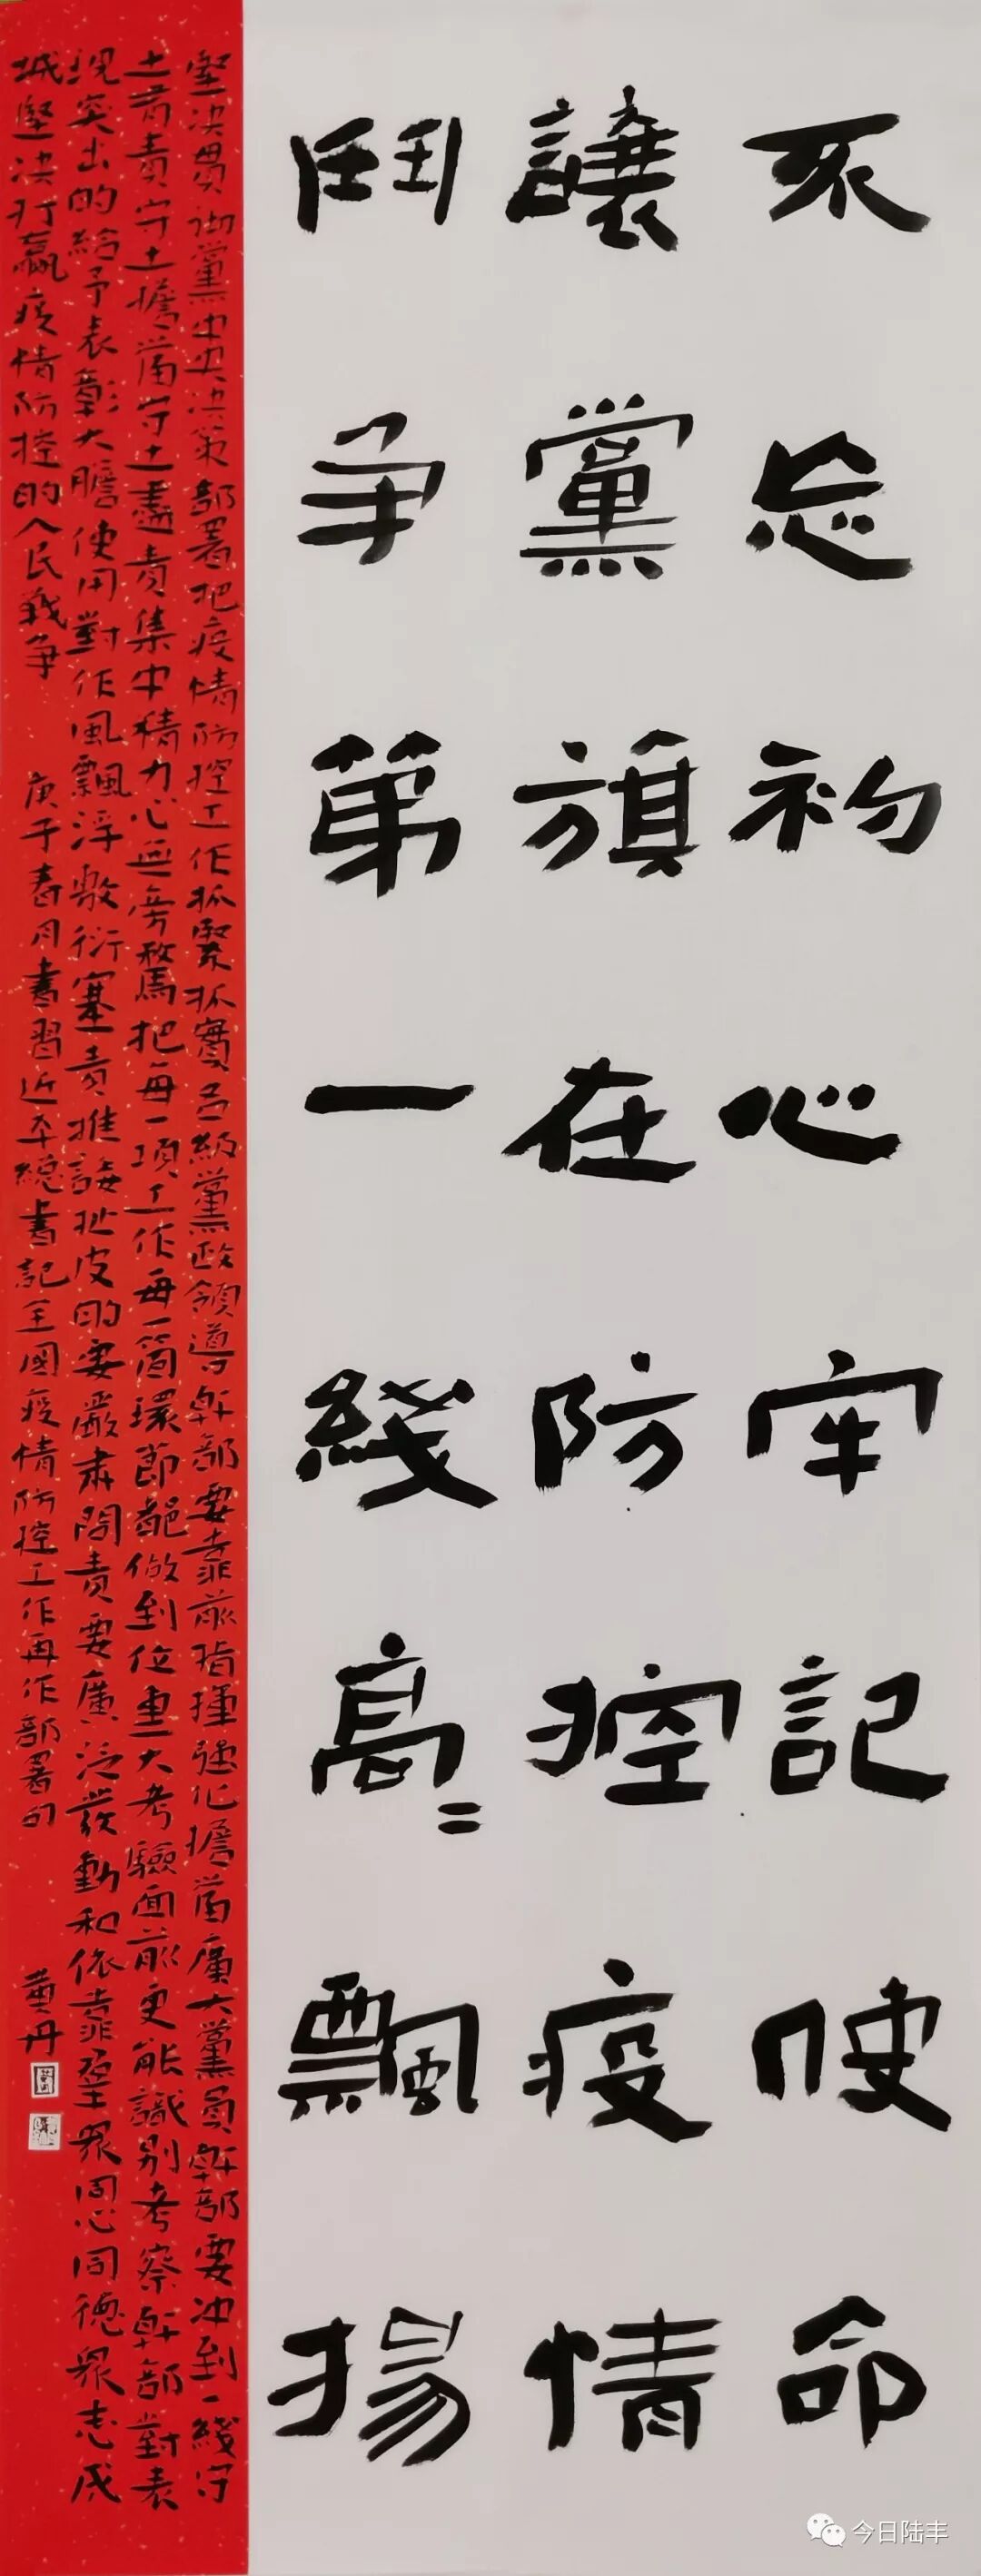 不忘初心牢記使命
讓黨旗在防控疫情
鬥争第一綫高〓飄揚
堅决貫徹黨中央决策部署把疫情防控工作抓緊抓實各級黨政領導幹部要靠前指揮强化擔當廣大黨員幹部要冲到一綫守
土有責守土擔當守土盡責集中精力心無旁騖把每一項工作每一箇環節都做到位重大考驗面前更能識别考察幹部對表
現突出的給予表彰大膽使用對作風飄浮敷衍塞責推諉扯皮的要嚴肅問責要廣泛發動和依靠羣衆同心同德衆志成
城堅决打贏疫情防控的人民戰争 庚子春月書習近平總書記全國疫情防控工作再作部署句 黄丹
今日陆丰